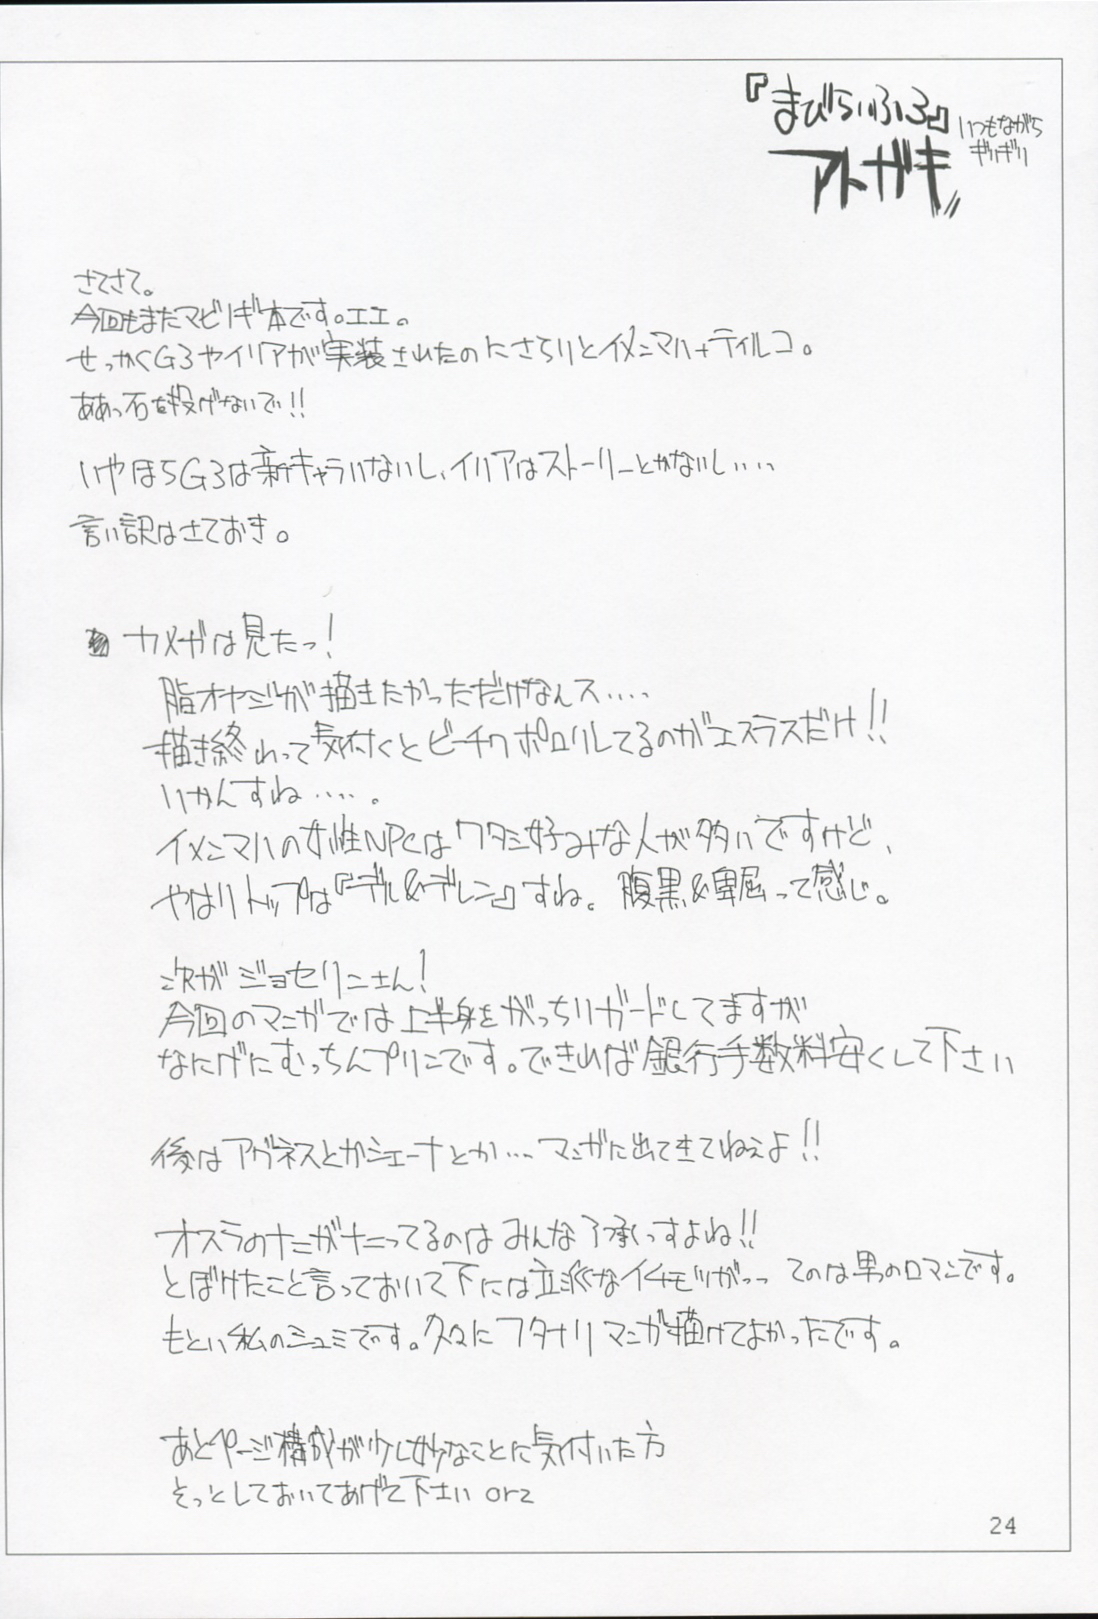 『まびらいふ3』
いつもながら
ギリギリ
アトガキ
さてさて。
今回もまたマビノギ本です。エエ。
せっかくG3やイリアが実装されたのにさらりとイメンマハ+ティルコ。
ああっ石を投げないで!!
いやほらG3は新キャラいないし、イリアはストーリーとかないし‥‥
言い訳はさておき。
カメガは見たっ!
脂オヤジが描きたかっただけなんス‥‥
描き終わって気付くとビーチクポロリしてるのがエスラスだけ!!
いかんすね‥‥。
イメンマハの女性NPCはワタシ好みな人が多いですけど、
やはりトップは『デル&デレン』すね。腹黒&卑屈って感じ。
次がジョセリンさん!
今回のマンガでは上半身をがっちりガードしてますが
なにげにむっちんプリンです。できれば銀行手数料安くして下さい
後はアグネスとかシェーナとか‥‥マンガに出て来てねえよ!!
オスラのナニがナニってるのはみんな了承っすよね!!
とぼけたこと言っておいて下には立派なイチモツがっっ てのは男のロマンです。
もとい私のシュミです。久々にフタナリマンガ描けてよかったです。
あとページ構成が少し妙なことに気付いた方
そっとしておいてあげて下さい orz
24